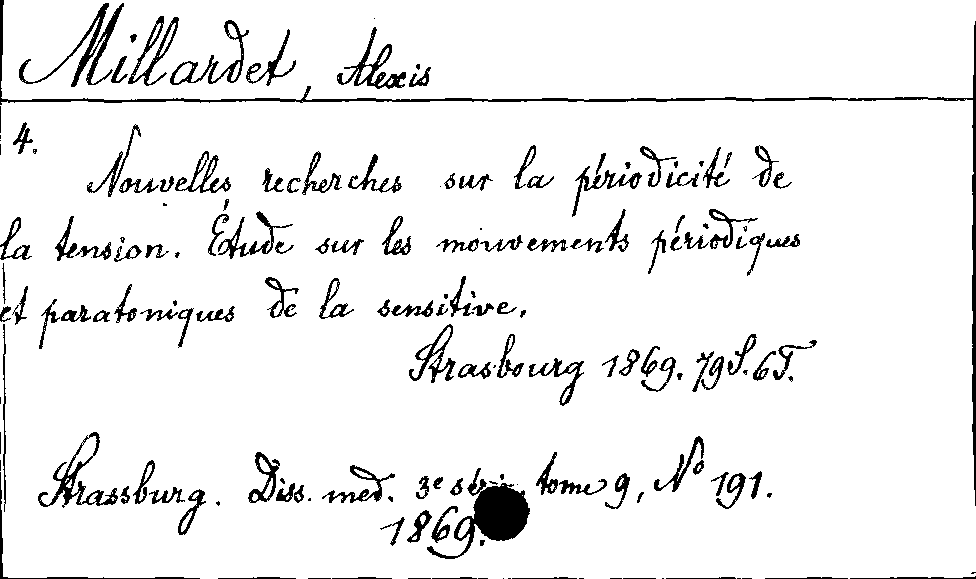 Millardet, Alexis
4.
Nouvelles recherches sur la périodicité de
la tension. Étude sur les mouvements périodiques
et paratoniques de la sensitive.
Strasbourg 1869. 79 S. 6 T.
Strassburg. Diss. med. 3e série, tome 9, No 191.
1869.